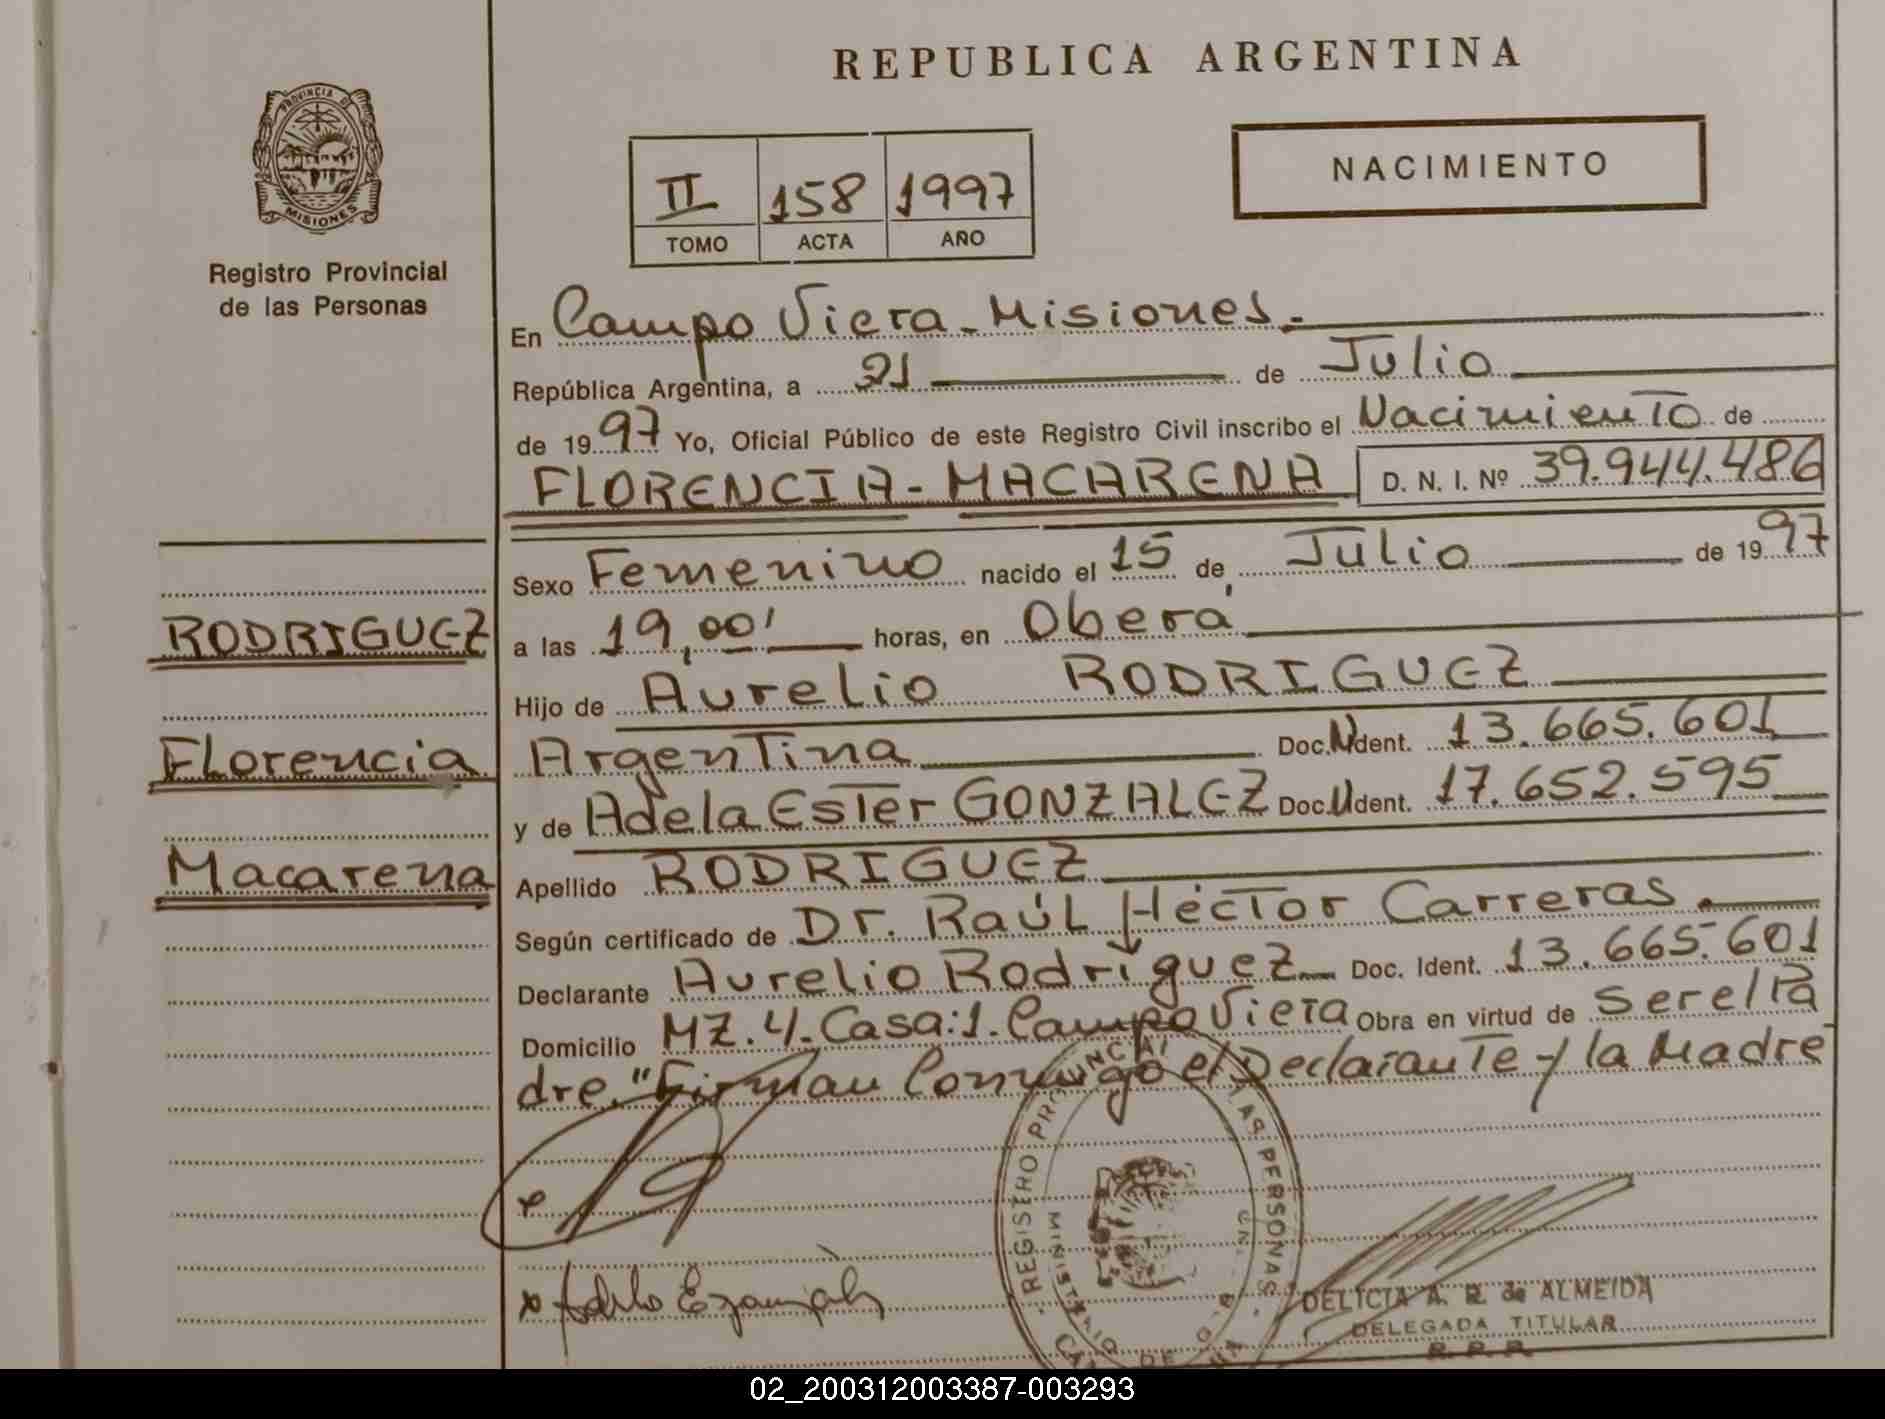 REPUBLICA ARGENTINA
PROVINCIA DE
MISIONES
Registro Provincial
de las Personas
NACIMIENTO
II 158 1997
TOMO ACTA AÑO
En Campo Viera - Misiones.
República Argentina, a 21 de Julio
de 1997 Yo, Oficial Público de este Registro Civil inscribo el Nacimiento de
FLORENCIA - MACARENA D. N. I. Nº 39.944.486
Sexo Femenino nacido el 15 de Julio de 1997
RODRIGUEZ
a las 19,00' horas, en Oberá
Hijo de Aurelio RODRIGUEZ
Florencia
Argentina Doc. N Ident. 13.665.601
y de Adela Ester GONZALEZ Doc. U Ident. 17.652.595
Macarena
Apellido RODRIGUEZ
Según certificado de Dr. Raúl Héctor Carreras.
Declarante Aurelio Rodríguez Doc. Ident. 13.665.601
Domicilio MZ. 4. Casa: 1. Campo Viera Obra en virtud de ser el Pa
dre. "Firman Conmigo el Declarante y la Madre
REGISTRO PROVINCIAL LAS PERSONAS
MINISTERIO DE
DELICIA A. R. de ALMEIDA
DELEGADA TITULAR
R.P.P.
02_200312003387-003293